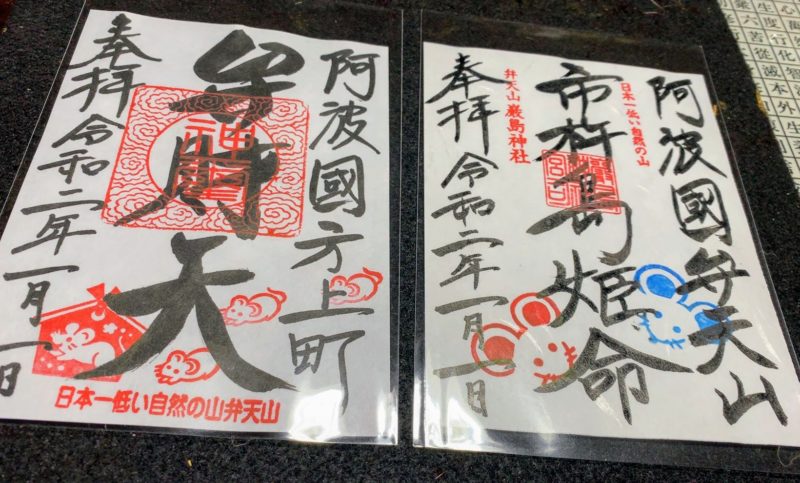 阿波國方上町
弁財天
神璽
奉拝 令和二年一月一日
日本一低い自然の山弁天山
阿波國弁天山
日本一低い自然の山
市杵島姫命
弁天山 厳島神社
奉拝 令和二年一月一日